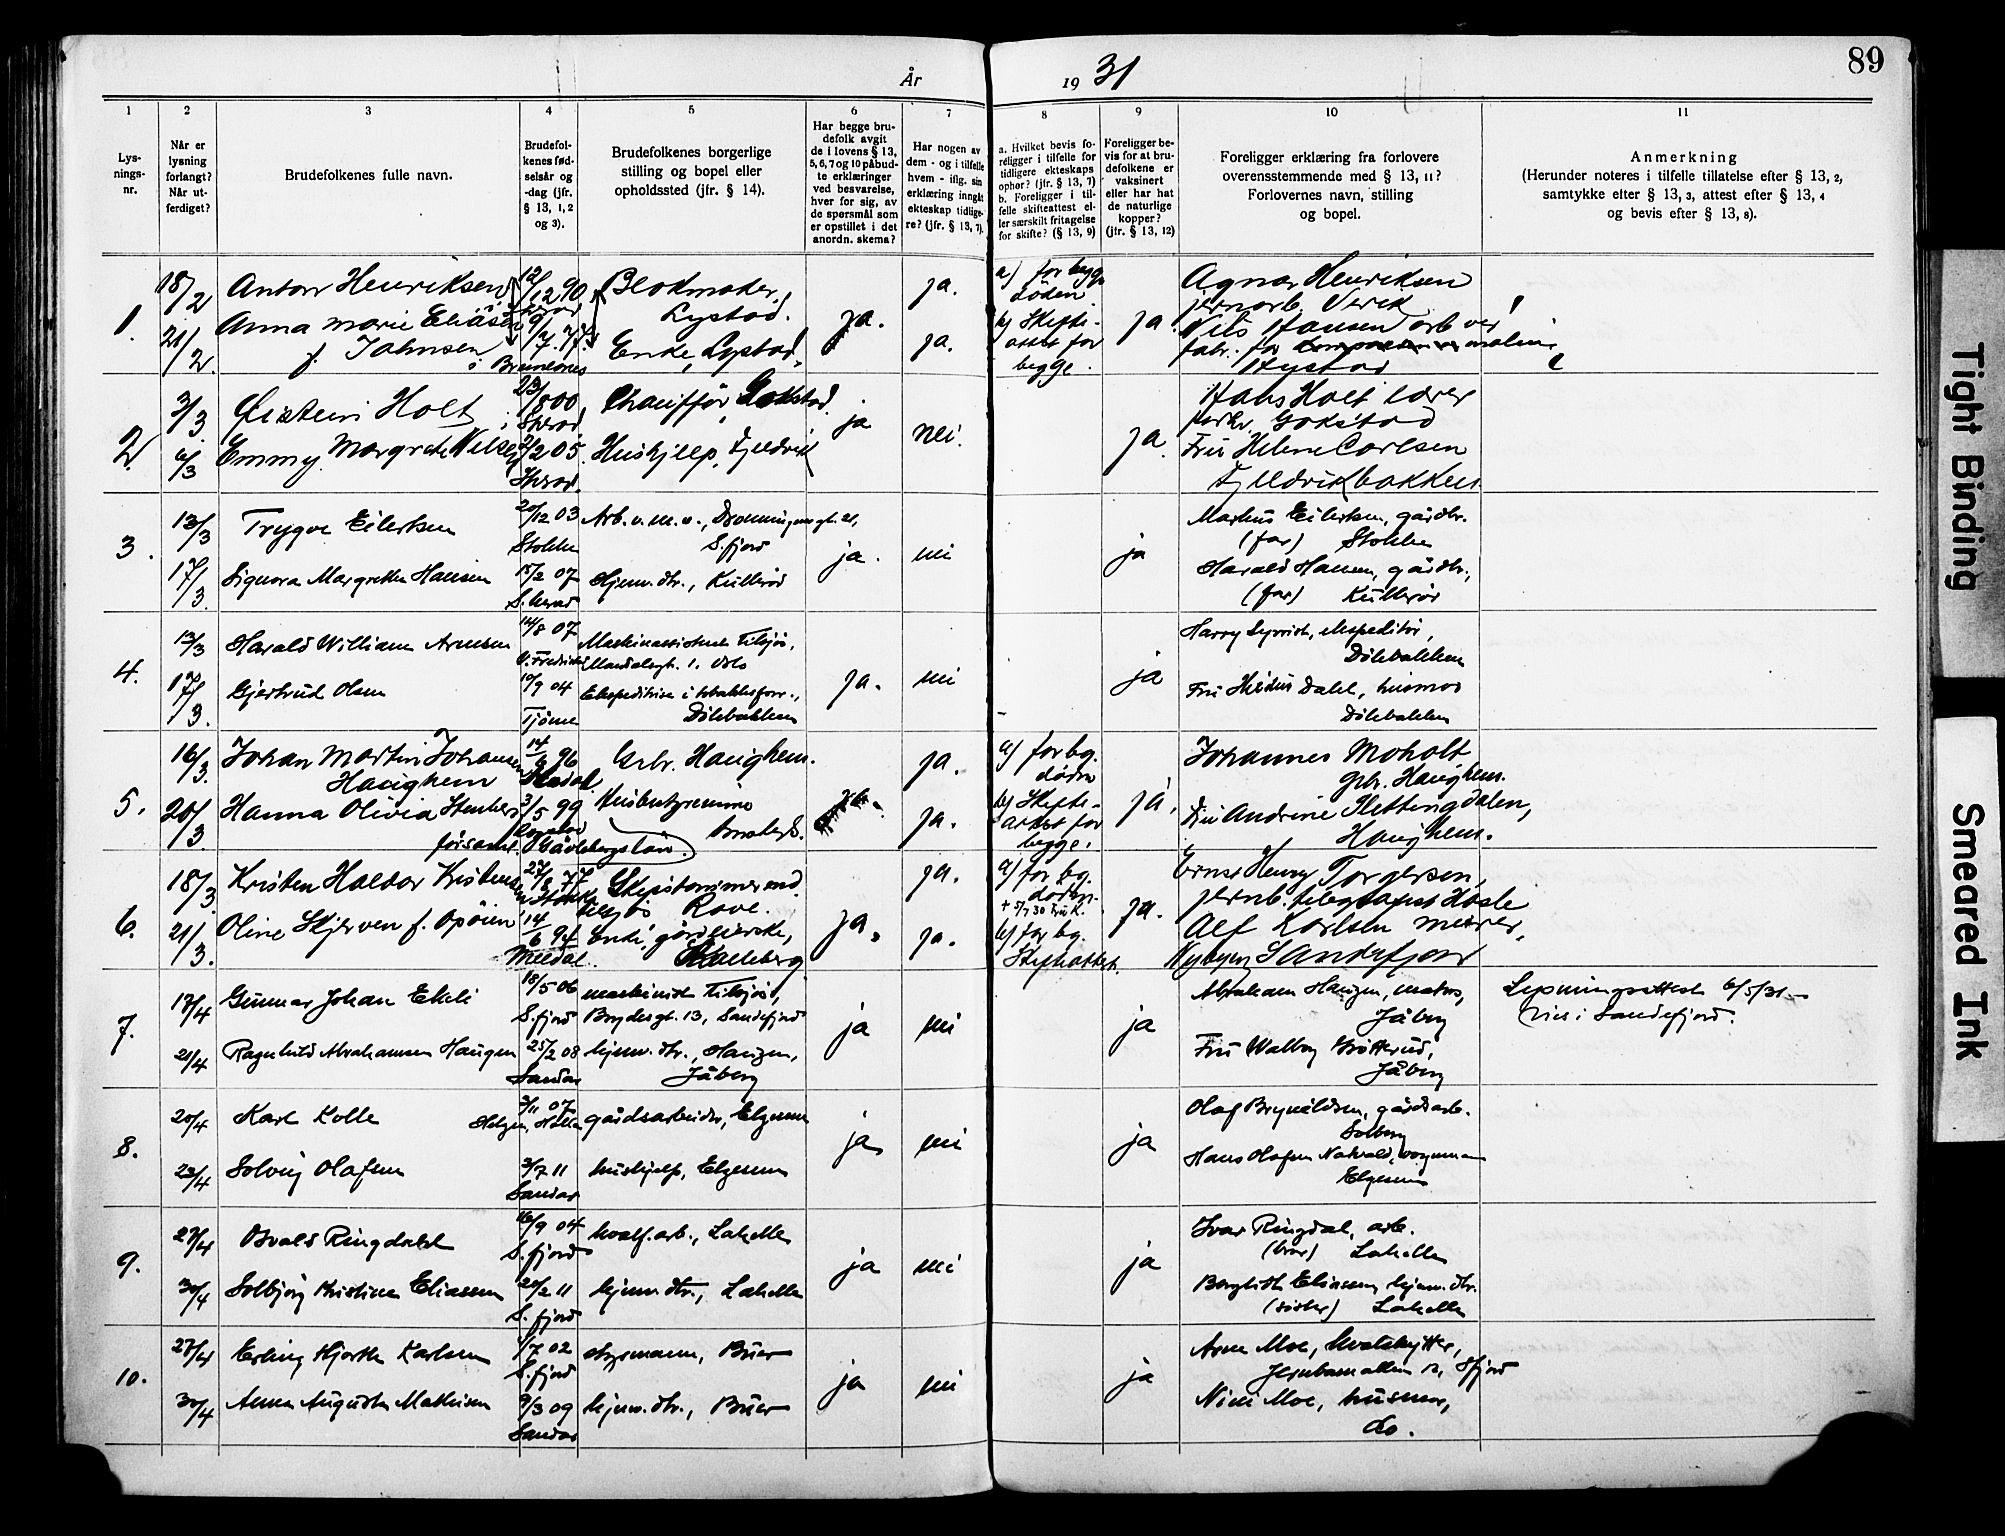 89
År 1931
1 2 3 4 5 6 7 8 9 10 11
Lys-
nings-
nr.
Når er
lysning
forlangt?
Når ut-
ferdiget?
Brudefolkenes fulle navn.
Brudefol-
kenes fød-
selsår og
-dag (jfr.
§ 13, 1, 2
og 3).
Brudefolkenes borgerlige
stilling og bopel eller
opholdssted (jfr. § 14).
Har begge bru-
defolk avgit
de i lovens § 13,
5, 6, 7 og 10 påbud-
te erklæringer
ved besvarelse,
hver for sig, av
de spørsmål som
er opstillet i det
anordn. skema?
Har nogen av
dem - og i tilfelle
hvem - iflg. sin
erklæring inngåt
ekteskap tidlige-
re? (jfr. § 13, 7).
a. Hvilket bevis fo-
religger i tilfelle for
tidligere ekteskaps
ophør? (jfr. § 13, 7)
b. Foreligger i til-
felle skifteattest el-
ler særskilt fritagelse
for skifte? (§ 13, 9)
Foreligger be-
vis for at bru-
defolkene er
vaksinert
eller har hat
de naturlige
kopper?
(jfr. § 13, 12)
Foreligger erklæring fra forlovere
overensstemmende med § 13, 11?
Forlovernes navn, stilling
og bopel.
Anmerkning
(Herunder noteres i tilfelle tillatelse efter § 13, 2,
samtykke efter § 13, 3, attest efter § 13, 4
og bevis efter § 13, 8).
1.
18/2
21/2
Anton Henriksen
Anna Marie Eliasen
f. Johnsen
12/12 90
9/7. 77.
i Brunlanes
Blokmaker
Lystad.
Enke, Lystad.
ja.
ja.
ja.
a) for begge
døden
b) Skifte-
attest for
begge.
ja
Agnar Henriksen
jernarb. Virik
Nils Hansen arb ver
fabr. for maling
Hystad
2.
3/3
6/3
Øistein Holt
Emmy Margrete Nilsen
23/8 00
2/2 05
Chauffør Gokstad
Hushjelp, Fjeldvik
ja
nei.
ja.
Hans Holt lærer
Gokstad
Fru Helene Carlsen
Fjeldvikbakken
3.
13/3
17/3.
Trygve Eilertsen
Signora Margrethe Hansen
20/12 03
Stokke
15/2 07
S. herad
Arb. u. m. v., Dronningensgt. 21,
S.fjord
Hjemv. dtr., Kullerød
ja.
nei
ja
Markus Eilertsen, gårdbr.
(far) Stokke
Harald Hansen, gårdbr.,
(far) Kullerød
4.
13/3
17/3.
Harald William Arnesen
Gjertrud Olsen
14/8 07
10/9 04
Tjøme
Maskinassistent tilsjøs,
1. Oslo
Ekspeditrise i tobakksforr.,
Dølebakken
ja.
nei
ja
Harry, ekspeditør,
Dølebakken
Fru Dahl, husmor
Dølebakken
5.
16/3.
20/3
Johan Martin Johansen
Haughem
Hanna Olivia Stenberg
14/6 96
3/5 99
Gävleborgs län.
Arb. Haughem.
Husbestyrerinne
ja.
ja.
ja.
a) for bg.
døden
b) Skifte-
attest for
begge.
ja.
Johannes Moholt
gbr. Haughem.
Fru Andrine Slettingdalen,
Haughem.
6.
18/3.
21/3.
Kristen Haldor Kristensen
Oline Skjerven f. Opøien
27/8 77
14/6 94
Meldal.
Skipstømmermand
tilsjøs Rove.
Enke, gårdeierske,
ja.
ja.
ja.
a) for bg.
døden
+ 5/7 30 Fru K.
b) for bg.
Skifteattest.
ja.
Ernst Henry Torgersen,
jernb. telegrafist Hasle
Alf Karlsen murer,
Nybyen Sandefjord
7.
17/4
21/4
Gunnar Johan Ekeli
Ragnhild Abrahamsen Haugen
18/5 06
S.fjord
25/2 08
Sandar
maskinist tilsjøs,
Brydesgt. 13, Sandefjord
hjemv. dtr., Haugen,
Jåberg
ja
nei
ja
Abraham Haugen, matros,
Jåberg
Fru Walborg Grøtterud,
Jåberg
Lysningsattest 6/5/31
Viet i Sandefjord.
8.
20/4
23/4
Karl Kolle
Solveig Olafsen
3/11 07
Helgen, Holla
3/7 11
Sandar
gårdsarbeider, Elgesem
hushjelp, Elgesem
ja
nei
ja
Olaf Brynildsen, gårdsarb.
Solberg
Hans Olafsen Natvald, vognmann
Elgesem
9.
27/4
30/4
Osvald Ringdahl
Solbjørg Kristine Eliassen
16/9 04
S. fjord
20/2 11
S. fjord
hvalf. arb., Lahelle
hjemv. dtr., Lahelle
ja
nei
ja
Ivar Ringdal, arb.
(bror) Lahelle
Bergliot Eliassen, hjemv. dtr.
(søster) Lahelle
10.
27/4
30/4
Erling Hjorth Karlsen
Anna Augusta Mathisen
1/7 02
S. fjord
9/3 09
Sandar
styrmann, Buer
hjemv. dtr., Buer
ja
nei
ja
Arne Moe, hvalskytter,
Jernbanealleen 12, Sfjord
Nicli Moe, husmor,
do.
Tight Binding
Smeared Ink